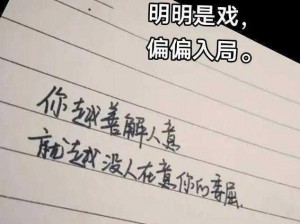 明明是戏，
偏偏入局。
你越善解人意
就越没人在意你的委屈.